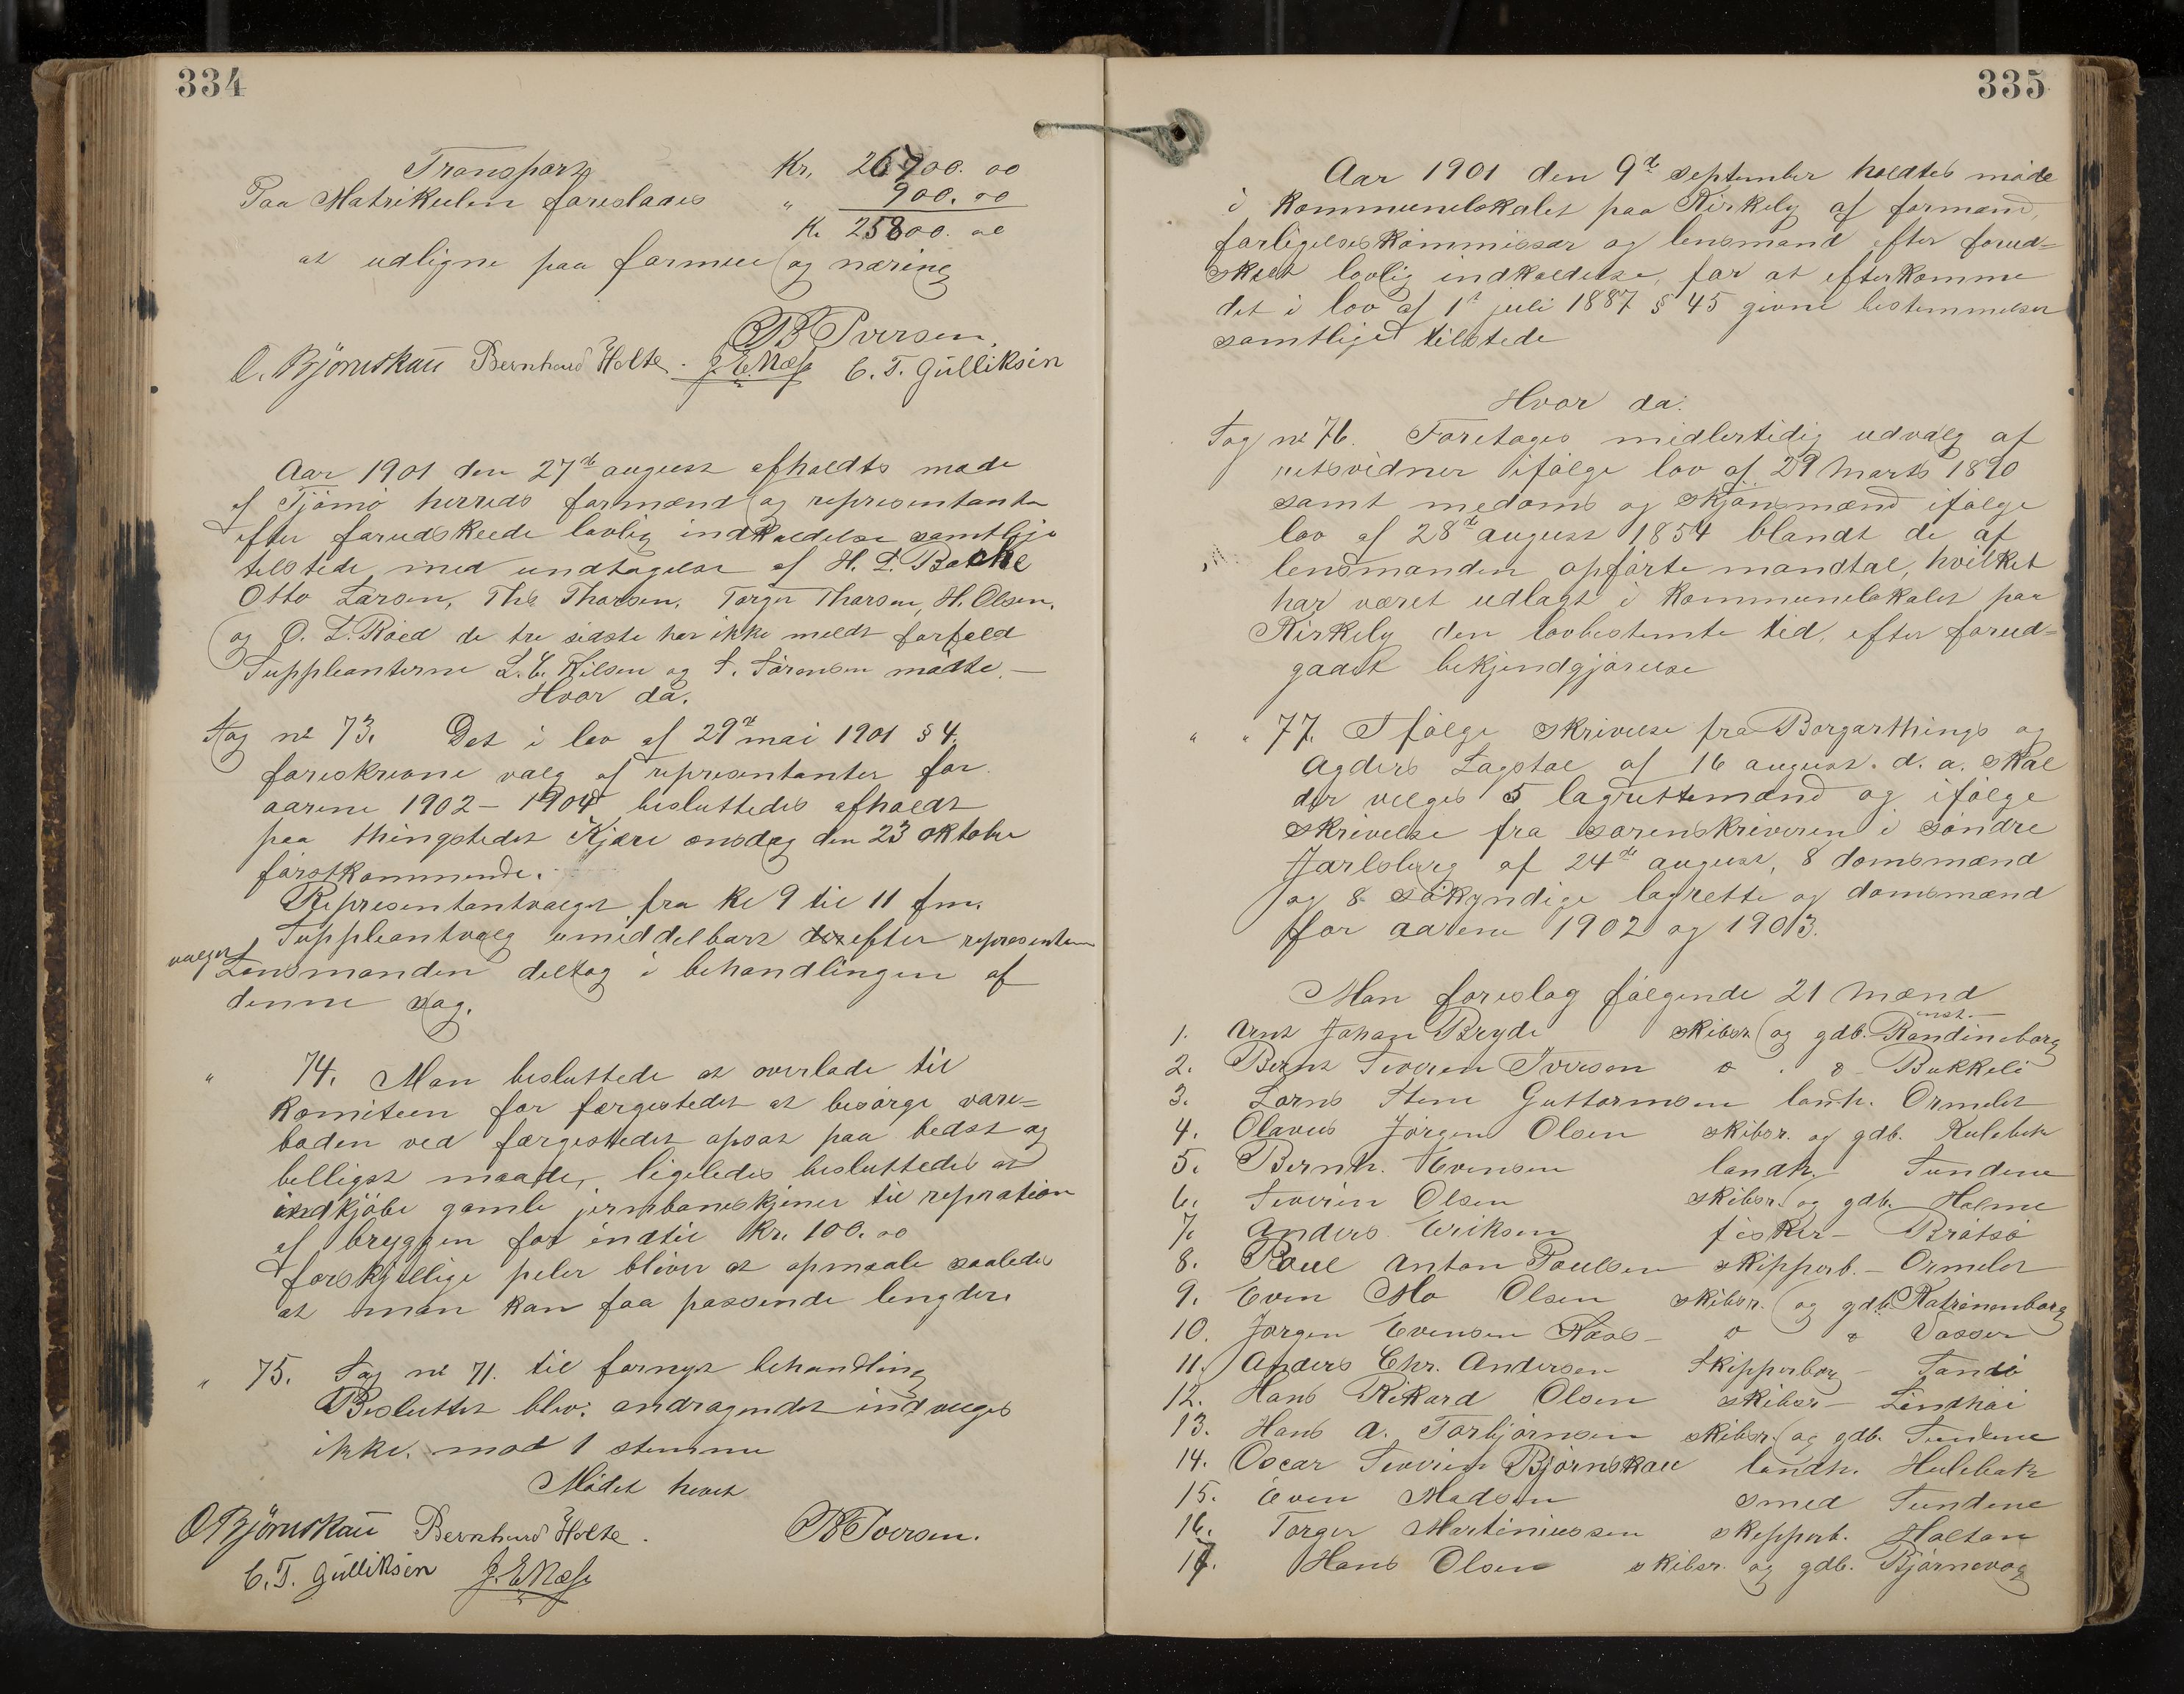 334
Transport Kr. 26700.00
Paa Matrikulen foreslaaes " 900.00
Kr 25800.00
at udligne paa formue og næring
B Iversen.
O. Björnskau Bernhard Holte. J. E. Næss C. T. Gulliksen
Aar 1901 den 27de august afholdts møde
af Tjömö herreds formænd og representanter
efter forudskeede lovlig indkaldelse samtlige
tilstede med undtagelse af H. L. Bache
Otto Larsen, Ths. Thorsen, Torger Thorsen, H. Olsen,
og O. L. Röed de tre sidste har ikke meldt forfald
Suppleanterne L. C. Nilsen og S. Sörensen mödte.—
Hvor da.
Sag no 73. Det i lov af 29de mai 1901 § 4.
foreskrevne valg af representanter for
aarene 1902–1904 besluttedes afholdt
paa thingstedet Kjære onsdag den 23 oktober
förstkommende.
Representantvalget fra kl 9 til 11 fm.
Suppleantvalg umiddelbart derefter representant
valget
Lensmanden deltog i behandlingen af
denne sag.
" 74. Man besluttede at overlade til
komiteen for færgestedet at besörge vare=
boden ved færgestedet opsat paa bedst og
belligst maade, ligeledes besluttedes at
indkjöbe gamle jernbaneskjener til repration
af bryggen for indtil kr. 100.00
forskjellige peler bliver at opmaale saaledes
at man kan faa passende lengder.
" 75. Sag no 71. til fornyet behandling
Besluttet blev: andragendet indvilges
ikke. mod 1 stemme
Mödet hevet
O Björnskau Bernhard Holte. B Iversen.
C. T. Gulliksen J. E. Næss
335
Aar 1901 den 9de september holdtes möde
i kommunelokalet paa Kirkely af formænd,
forligelseskommissær og lensmand efter forud=
skeet lovlig indkaldelse, for at efterkomme
det i lov af 1ste juli 1887 § 45 givne bestemmelser
samtlige tilstede
Hvor da:
Sag no 76. Foretoges midlertidig udvalg af
retsvidner ifölge lov af 29 Marts 1890
samt medoms og skjönsmænd ifölge
lov af 28de august 1854 blandt de af
lensmanden opförte mandtal, hvilket
har været udlagt i kommunelokalet paa
Kirkely den lovbestemte tid, efter forud=
gaaet bekjendgjörelse
" " 77. I fölge skrivelse fra Borgarthings og
Agders Lagstol af 16 august. d. a. skal
der velges 5 lagrettemænd og ifölge
skrivelse fra sorenskriveren i söndre
Jarlsberg af 24de august, 8 domsmænd
og 8 sökyndige lagrette og domsmænd
for aarene 1902 og 1903.
Man foreslog fölgende 21 Mænd
1. Arnt Johan Bryde skibsr. og gdb. Randineborg
2. Bernt Severin Iversen " . " Bukkeli
3. Lorns Stene Guttormsen landh. Ormelet
4. Olaves Jörgen Olsen skibsr. og gdb. Kulebek
5. Bernh. Evensen landh. Sundene
6. Severin Olsen skibsr. og gdb. Holme
7. Anders Eriksen fisker – Bråtsö
8. Poul Anton Poulsen skipperb. – Ormelet
9. Even Mo Olsen skibsr. og gdb. Katrinenborg
10. Jörgen Evensen Næss – " " Vasser
11. Anders Chr. Andersen Skipperborg – Sandö
12. Hans Rikard Olsen skibsr – Lindhöi
13. Hans A. Torbjörnsen skibsr. og gdb. Sundene
14. Oscar Severin Björnskau landh. Hulebak
15. Even Madsen smed Sundene
16. Torger Martiniussen skipperb. Holtan
17. Hans Olsen skibsr. og gdb. Bjørnevog